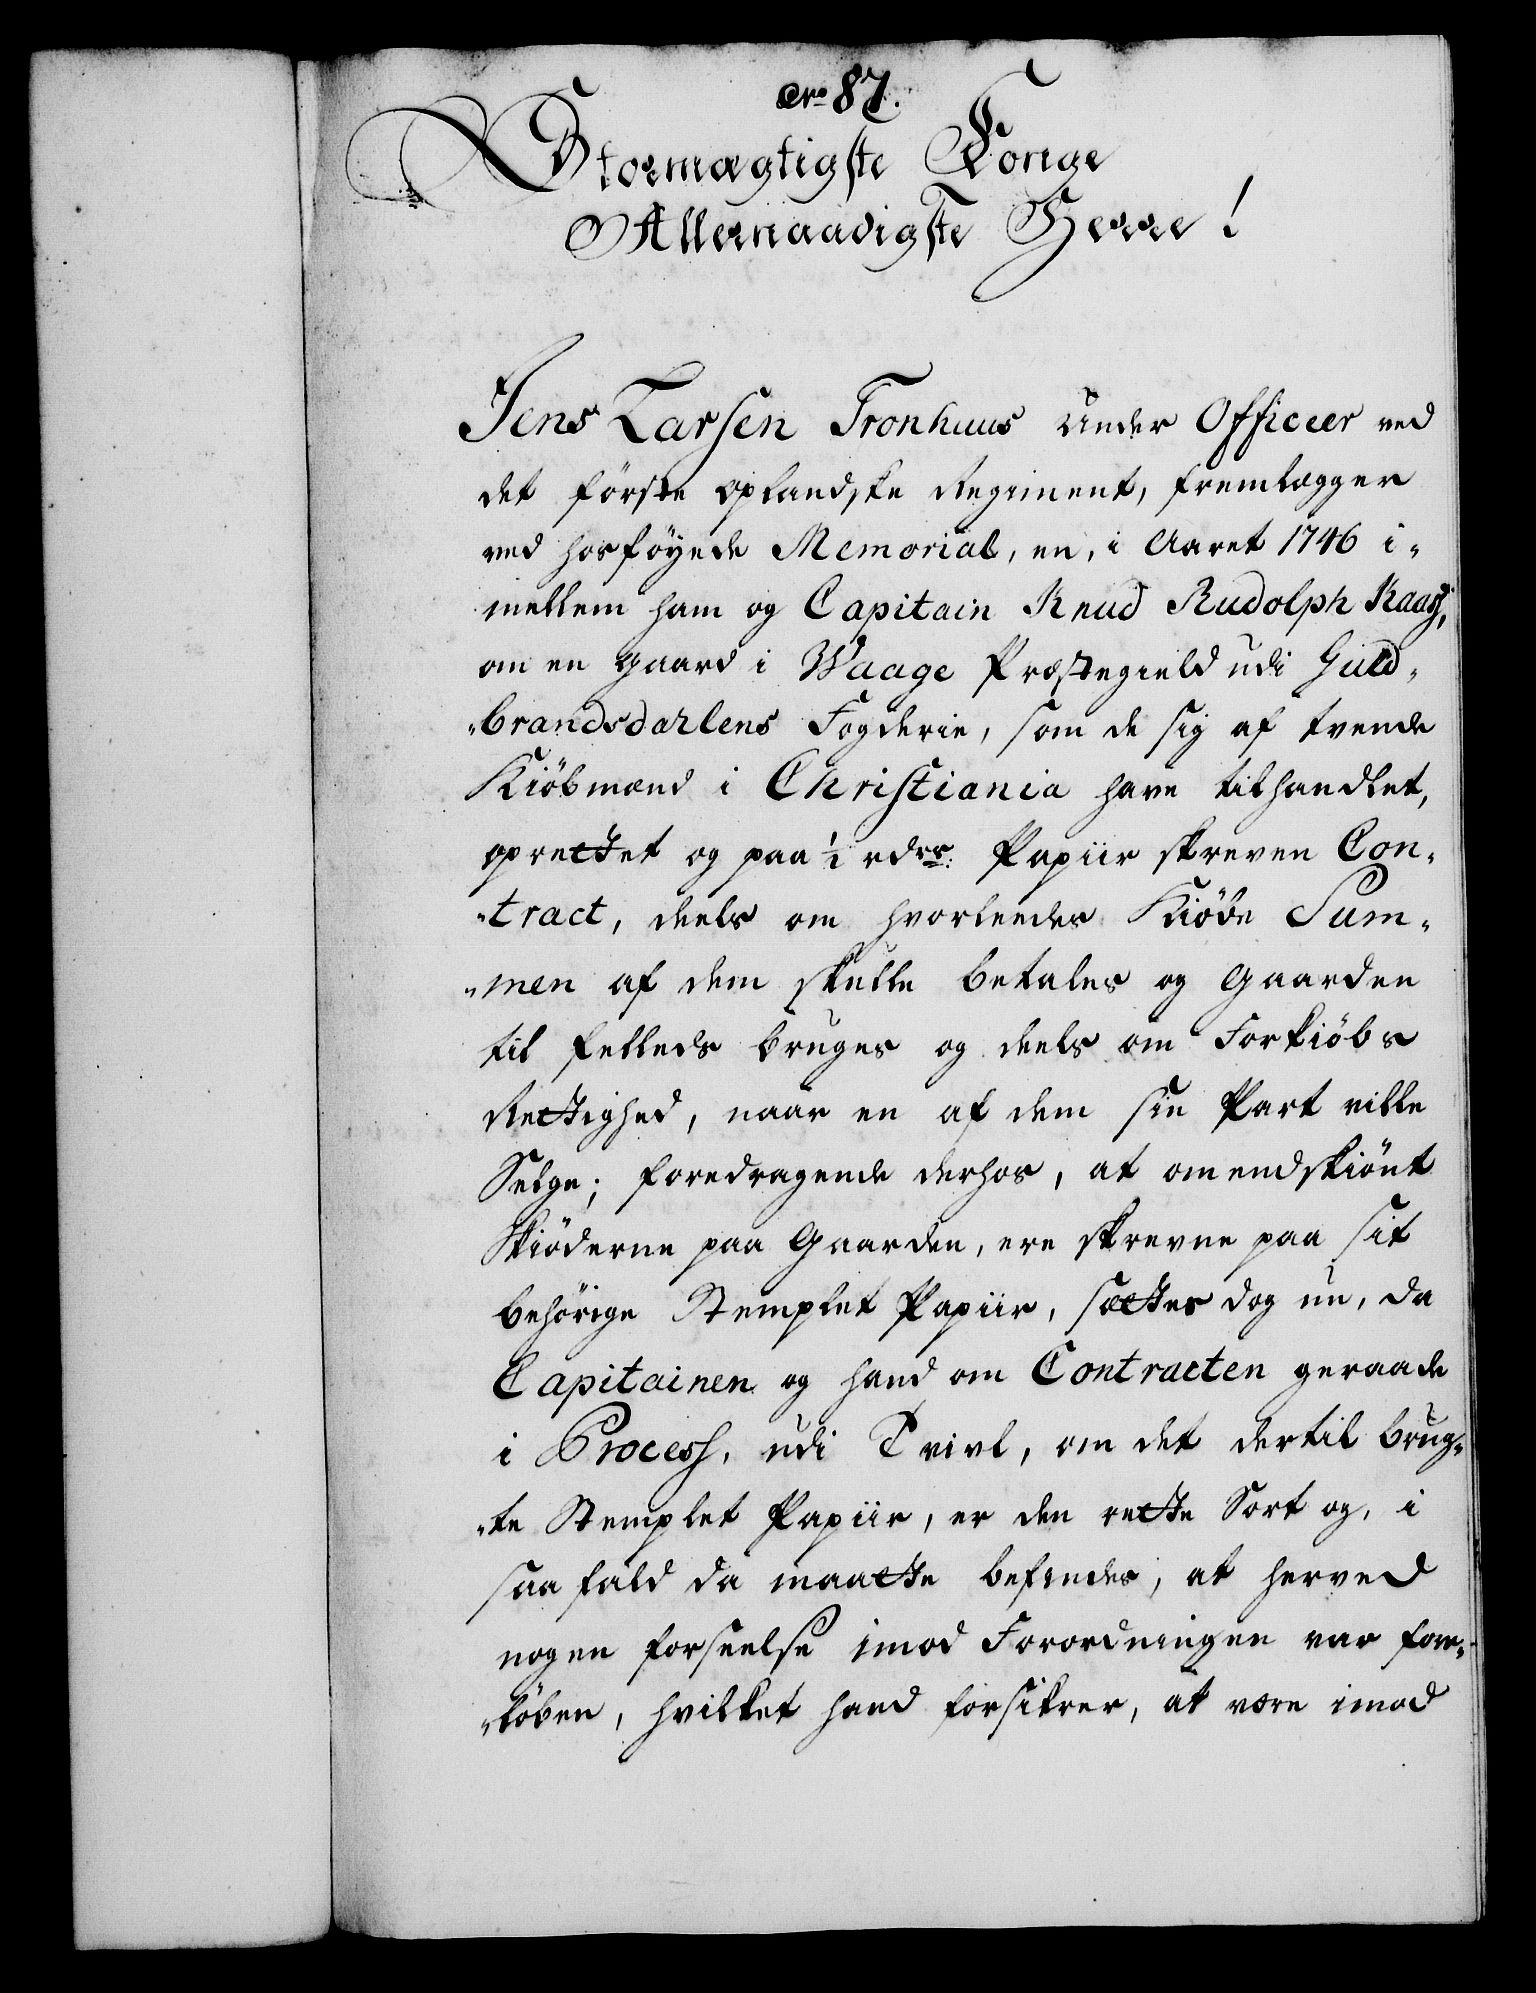 Nro 87.
Stormægtigste Konge
Allernaadigste Herre!
Jens Larsen Tronhuus Under Officeer ved
det förste oplandske Regiment, fremlægger
ved hosföyede Memorial, en, i Aaret 1746 i-
mellem ham og Capitain Knud Rudolph Kaas,
om en gaard i Waage Præstegield udi Guld-
-brandsdahlens Fogderie, som de sig af tvende
Kiöbmænd i Christiania have tilhandlet,
oprettet og paa ½ rdrs: Papiir skreven Con-
-tract, deels om hvorleedes Kiöbe Sum-
-men af dem skulle betales og Gaarden
til felleds bruges og deels om Forkiöbs
Rettighed, naar en af dem sin Part ville
Selge; foredragende derhos, at omendskiönt
Skiöderne paa Gaarden, ere skrevne paa sit
behörige Stemplet Papiir, sættes dog nu, da
Capitainen og hand om Contracten geraade
i Process, udi Tvivl, om det dertil brug-
-te Stemplet Papiir, er den rette Sort og, i
saa fald da maatte befindes, at herved
nogen forseelse imod Forordningen var for-
-löben, hvilket hand forsikrer, at være imod